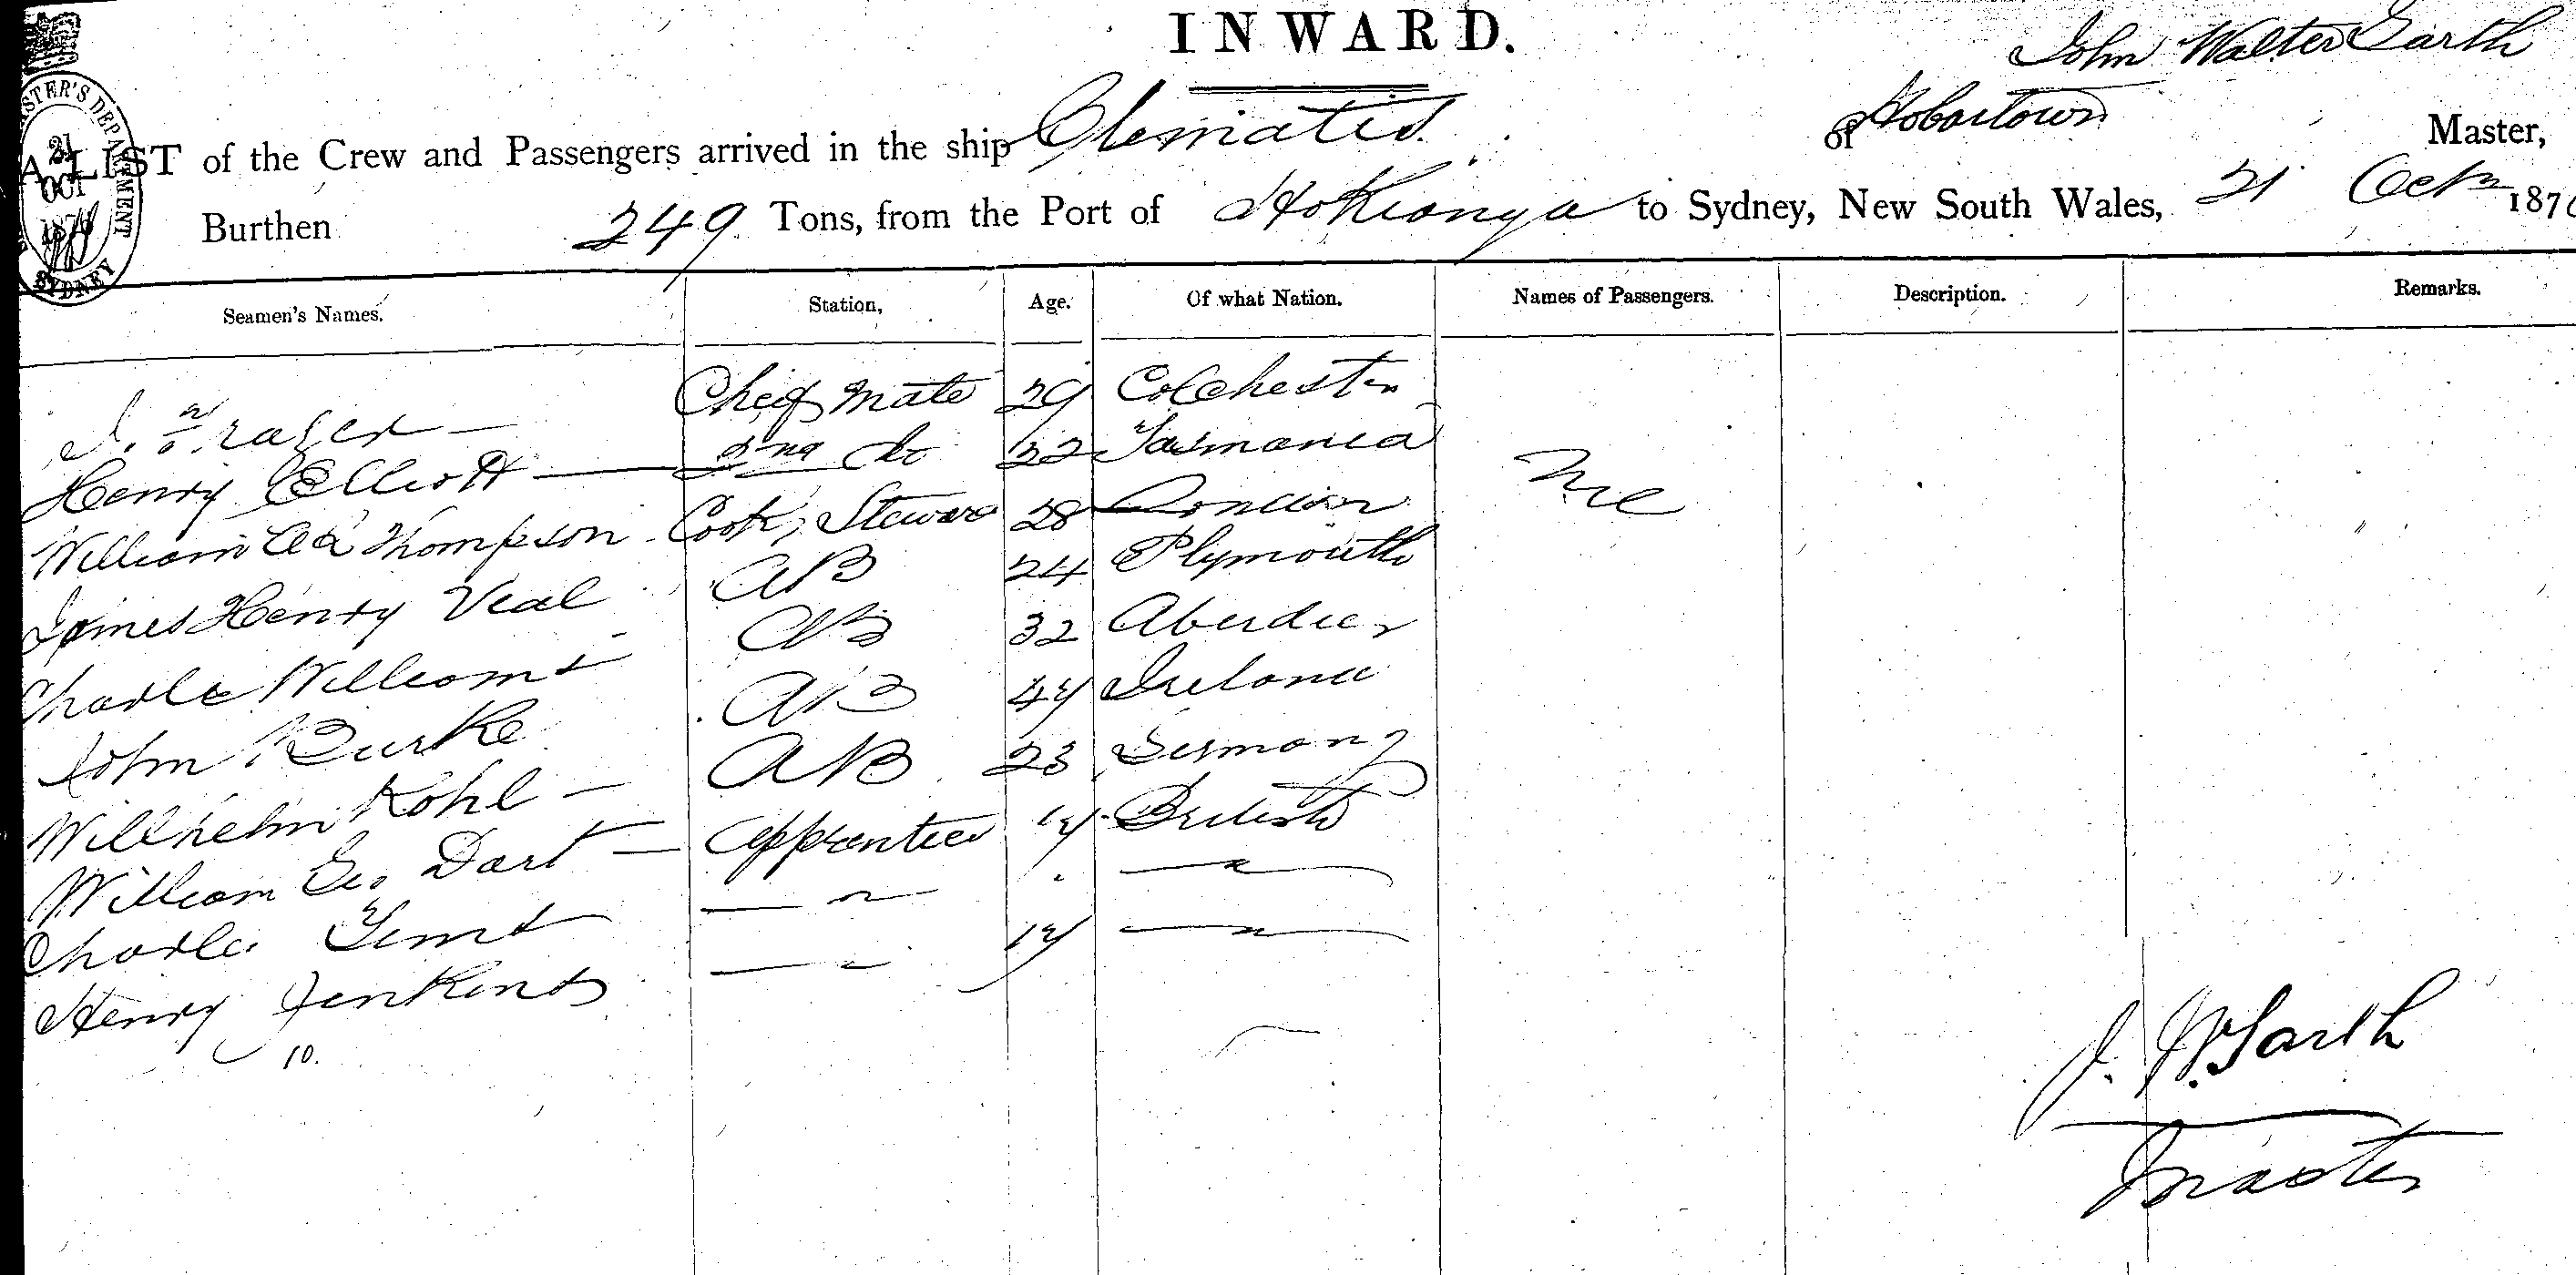 INWARD.
John Walter Garth
A LIST of the Crew and Passengers arrived in the ship Clematis of Hobartown Master,
Burthen 249 Tons, from the Port of Hokianga to Sydney, New South Wales, 21 Octr 187
STER'S DEPARTMENT
21
OCT
SYDNEY
Seamen's Names. Station, Age. Of what Nation. Names of Passengers. Description. Remarks.
Frazer Chief Mate 29 Colchester
Henry Elliott 2nd do 22 Tasmania
William Thompson Cook, Steward 28 London Nil
James Henry Veal AB 24 Plymouth
Charle Williams AB 32 Aberdeen
John Burke AB Ireland
Wilhelm Kohl AB 23 Germany
William Geo Dart Apprentice 17 British
Charles — " — . — " —
Henry Jenkins — " — 17 — " —
10.
J. W. Garth
Master